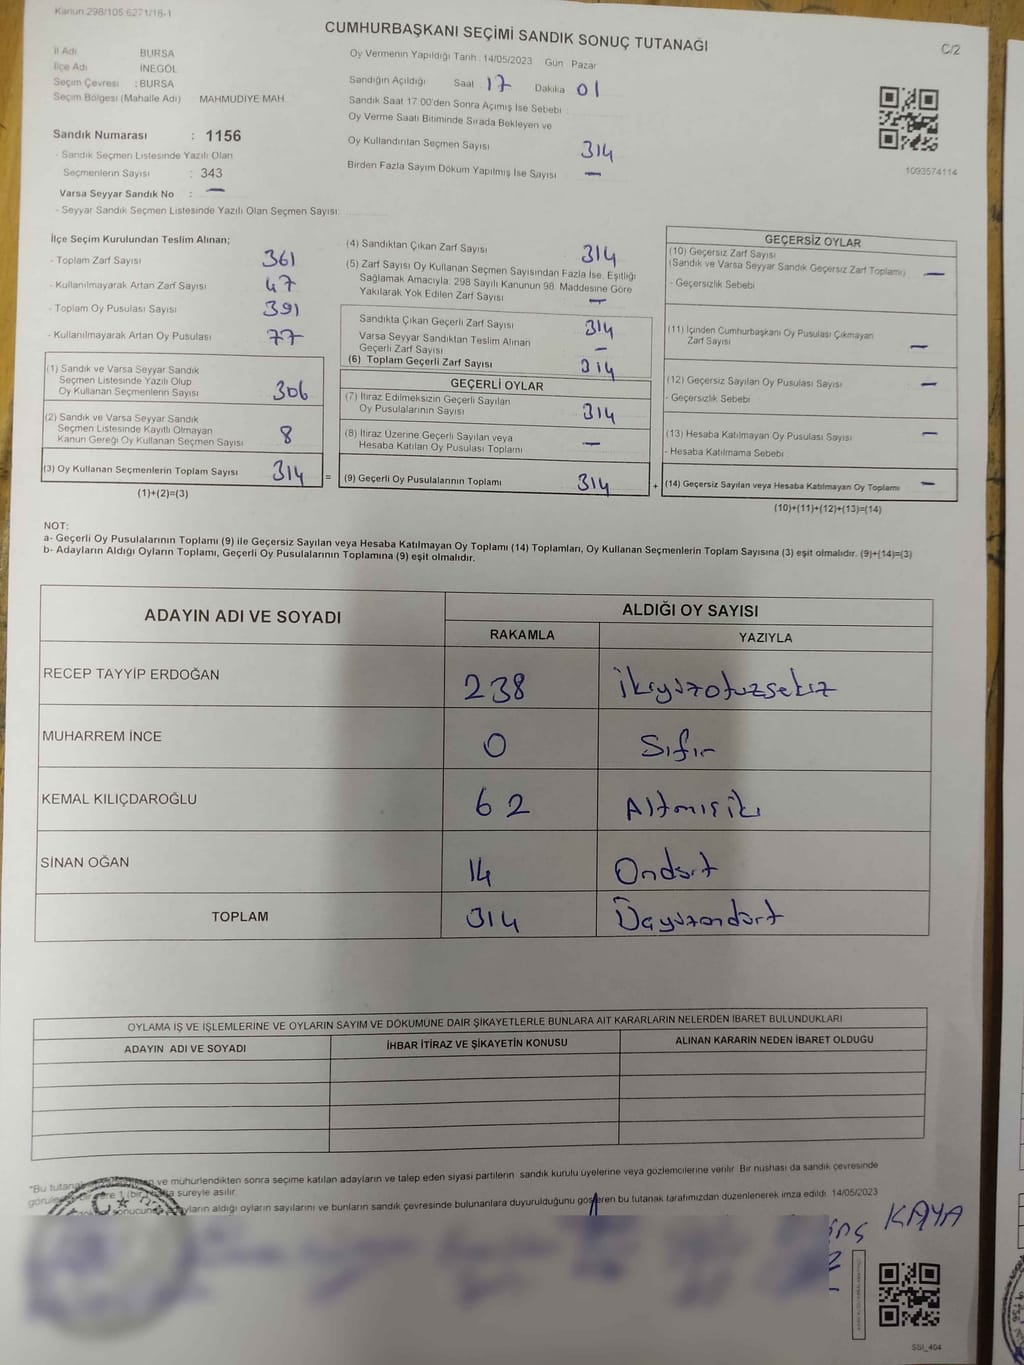 Kanun 298/105 6271/18-1
CUMHURBAŞKANI SEÇİMİ SANDIK SONUÇ TUTANAĞI
C/2
İl Adı BURSA
İlçe Adı İNEGÖL
Seçim Çevresi : BURSA
Seçim Bölgesi (Mahalle Adı) MAHMUDİYE MAH
Sandık Numarası : 1156
- Sandık Seçmen Listesinde Yazılı Olan
Seçmenlerin Sayısı : 343
Varsa Seyyar Sandık No : —
- Seyyar Sandık Seçmen Listesinde Yazılı Olan Seçmen Sayısı:
Oy Vermenin Yapıldığı Tarih : 14/05/2023 Gün Pazar
Sandığın Açıldığı Saat 17 Dakika 01
Sandık Saat 17:00'den Sonra Açımış İse Sebebi :
Oy Verme Saati Bitiminde Sırada Bekleyen ve
Oy Kullandırılan Seçmen Sayısı 314
Birden Fazla Sayım Döküm Yapılmış İse Sayısı —
1093574114
İlçe Seçim Kurulundan Teslim Alınan;
- Toplam Zarf Sayısı 361
- Kullanılmayarak Artan Zarf Sayısı 47
- Toplam Oy Pusulası Sayısı 391
- Kullanılmayarak Artan Oy Pusulası 77
(1) Sandık ve Varsa Seyyar Sandık
Seçmen Listesinde Yazılı Olup
Oy Kullanan Seçmenlerin Sayısı 306
(2) Sandık ve Varsa Seyyar Sandık
Seçmen Listesinde Kayıtlı Olmayan
Kanun Gereği Oy Kullanan Seçmen Sayısı 8
(3) Oy Kullanan Seçmenlerin Toplam Sayısı 314 =
(1)+(2)=(3)
(4) Sandıktan Çıkan Zarf Sayısı 314
(5) Zarf Sayısı Oy Kullanan Seçmen Sayısından Fazla İse, Eşitliği
Sağlamak Amacıyla, 298 Sayılı Kanunun 98. Maddesine Göre
Yakılarak Yok Edilen Zarf Sayısı —
Sandıkta Çıkan Geçerli Zarf Sayısı 314
Varsa Seyyar Sandıktan Teslim Alınan
Geçerli Zarf Sayısı —
(6) Toplam Geçerli Zarf Sayısı 314
GEÇERLİ OYLAR
(7) İtiraz Edilmeksizin Geçerli Sayılan
Oy Pusulalarının Sayısı 314
(8) İtiraz Üzerine Geçerli Sayılan veya
Hesaba Katılan Oy Pusulası Toplamı —
(9) Geçerli Oy Pusulalarının Toplamı 314 +
GEÇERSİZ OYLAR
(10) Geçersiz Zarf Sayısı
(Sandık ve Varsa Seyyar Sandık Geçersiz Zarf Toplamı) —
- Geçersizlik Sebebi
(11) İçinden Cumhurbaşkanı Oy Pusulası Çıkmayan
Zarf Sayısı —
(12) Geçersiz Sayılan Oy Pusulası Sayısı —
- Geçersizlik Sebebi
(13) Hesaba Katılmayan Oy Pusulası Sayısı —
- Hesaba Katılmama Sebebi
(14) Geçersiz Sayılan veya Hesaba Katılmayan Oy Toplamı —
(10)+(11)+(12)+(13)=(14)
NOT:
a- Geçerli Oy Pusulalarının Toplamı (9) ile Geçersiz Sayılan veya Hesaba Katılmayan Oy Toplamı (14) Toplamları, Oy Kullanan Seçmenlerin Toplam Sayısına (3) eşit olmalıdır. (9)+(14)=(3)
b- Adayların Aldığı Oyların Toplamı, Geçerli Oy Pusulalarının Toplamına (9) eşit olmalıdır.
ADAYIN ADI VE SOYADI ALDIĞI OY SAYISI
RAKAMLA YAZIYLA
RECEP TAYYİP ERDOĞAN 238 İkiyüzotuzsekiz
MUHARREM İNCE 0 Sıfır
KEMAL KILIÇDAROĞLU 62 Altmışiki
SİNAN OĞAN 14 Ondört
TOPLAM 314 Üçyüzondört
OYLAMA İŞ VE İŞLEMLERİNE VE OYLARIN SAYIM VE DÖKÜMÜNE DAİR ŞİKAYETLERLE BUNLARA AİT KARARLARIN NELERDEN İBARET BULUNDUKLARI
ADAYIN ADI VE SOYADI İHBAR İTİRAZ VE ŞİKAYETİN KONUSU ALINAN KARARIN NEDEN İBARET OLDUĞU
"Bu ve mühürlendikten sonra seçime katılan adayların ve talep eden siyasi partilerin sandık kurulu üyelerine veya gözlemcilerine verilir. Bir nüshası da sandık çevresinde
süreyle asılır.
aldığı oyların sayılarını ve bunların sandık çevresinde bulunanlara duyurulduğunu gösteren bu tutanak tarafımızdan düzenlenerek imza edildi. 14/05/2023
KAYA
SSI_404